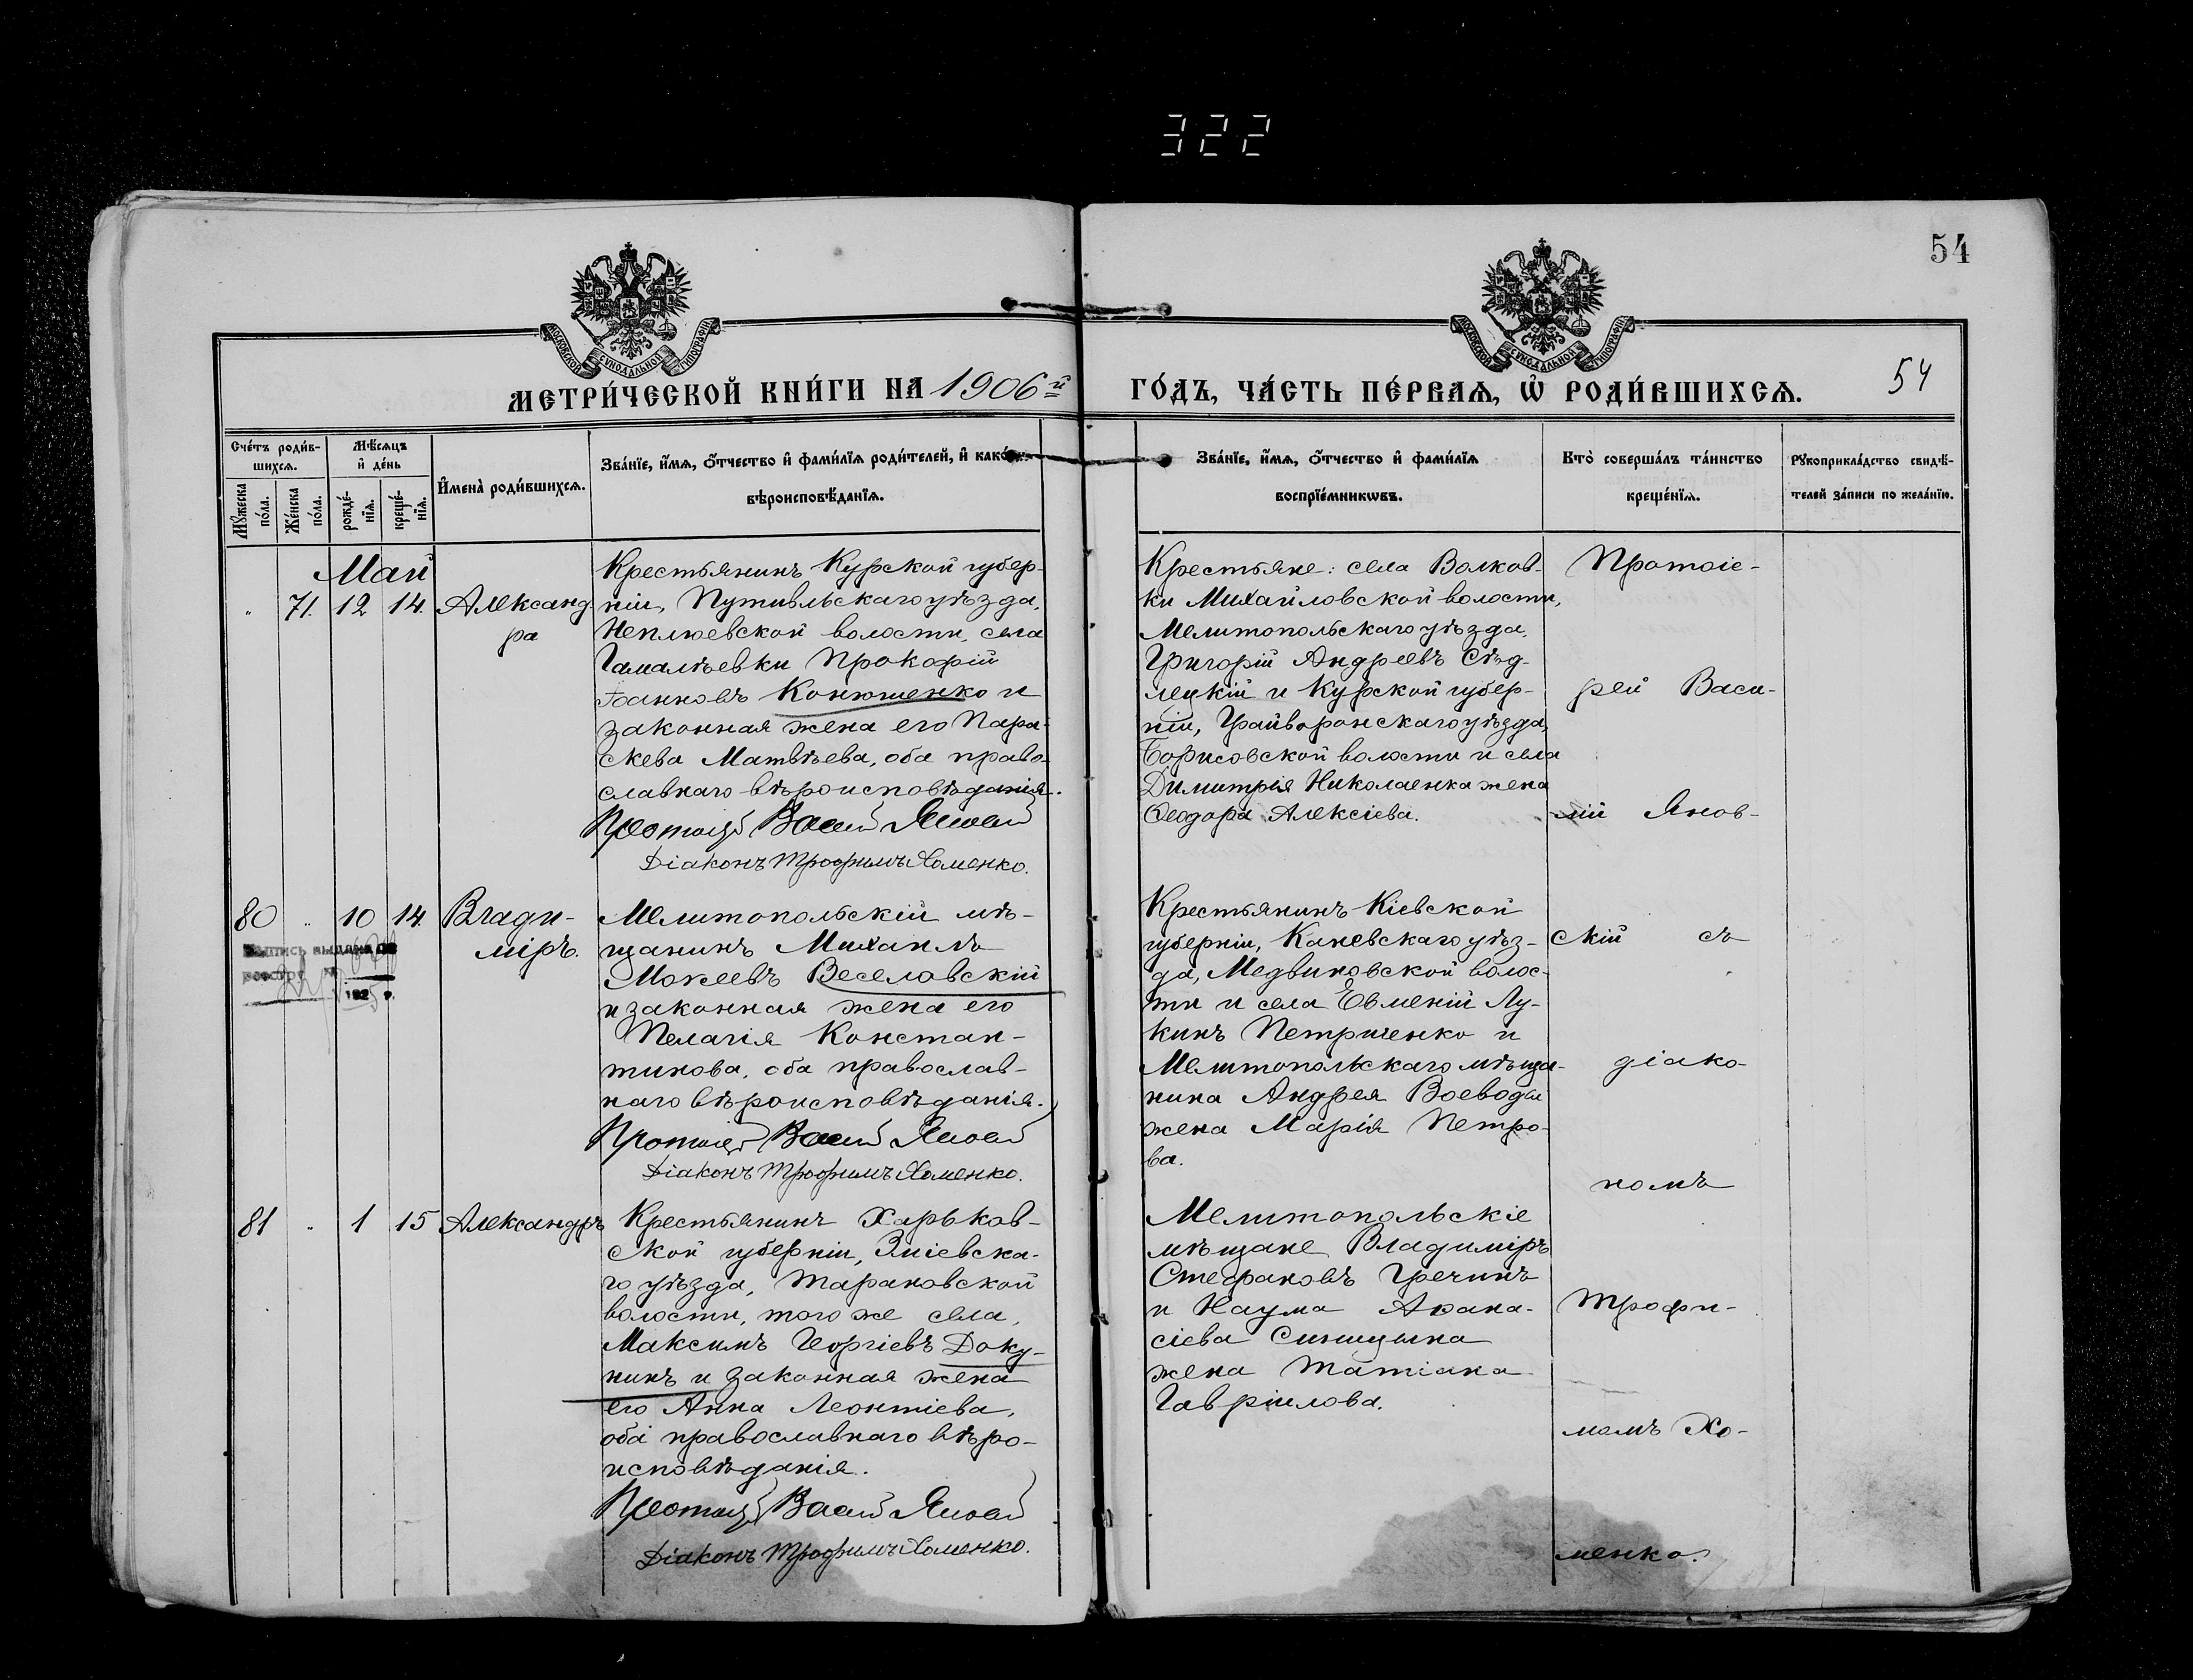 322
54
МОСКОВСКОЙ СѴНОДАЛЬНОЙ ТИПОГРАФІИ
МОСКОВСКОЙ СѴНОДАЛЬНОЙ ТИПОГРАФІИ
МЕТРИ́ЧЕСКОЙ КНИ́ГИ НА 1906й
ГО́ДЪ, ЧА́СТЬ ПЕ́РВАѦ, Ѡ҆ РОДИ́ВШИХСѦ.
54
Сче́тъ роди́в-
шихсѧ.
Мꙋ́жеска по́ла.
Же́нска по́ла.
Мѣ́сѧцъ
и҆ де́нь
рожде́-
нїѧ.
креще́-
нїѧ.
И҆мена̀ роди́вшихсѧ.
Зва́нїе, и҆́мѧ, ѻ҆́тчество и҆ фами́лїѧ роди́телей, и҆ како́гѡ
вѣроисповѣ́данїѧ.
Зва́нїе, и҆́мѧ, ѻ҆́тчество и҆ фами́лїѧ
воспрїе́мникѡвъ.
Кто̀ соверша́лъ та́инство
креще́нїѧ.
Рꙋкоприкла́дство свидѣ́-
телей за́писи по жела́нїю.
Май
" 71. 12 14. Александ-
ра
Крестьянинъ Курской губер-
ніи, Путивльскаго уѣзда,
Неплюевской волости, села
Гамалѣевки Прокофій
Іоанновъ Конюшенко и
законная жена его Пара-
скева Матвѣева, оба право-
славнаго вѣроисповѣданія.
Протоіер Васил Яновс
Діаконъ Трофимъ Хоменко.
Крестьяне: села Волков-
ки Михайловской волости,
Мелитопольскаго уѣзда,
Григорій Андреевъ Сѣд-
лецкій и Курской губер-
ніи, Грайворонскаго уѣзда,
Борисовской волости и села
Димитрія Николаенка жена
Ѳеодора Алексіева.
Протоіе-
рей Васи-
лій Янов-
80 " 10 14. Влади-
міръ.
Запись выдана
реестру №
1925 г.
Мелитопольскій мѣ-
щанинъ Михаилъ
Мокеевъ Веселовскій
и законная жена его
Пелагія Констан-
тинова, оба православ-
наго вѣроисповѣданія.
Протоіер Васил Яновс
Діаконъ Трофимъ Хоменко.
Крестьянинъ Кіевской
губерніи, Каневскаго уѣз-
да, Медвиновской волос-
ти и села Евменій Лу-
кинъ Петриченко и
Мелитопольскаго мѣща-
нина Андрея Воеводы
жена Марія Петро-
ва.
скій съ
діако-
номъ
81 " 1 15 Александръ
Крестьянинъ Харьков-
ской губерніи, Зміевска-
го уѣзда, Тарановской
волости, того же села,
Максимъ Георгіевъ Доку-
нинъ и законная жена
его Анна Леонтіева,
оба православнаго вѣро-
исповѣданія.
Протоіер Васил Яновс
Діаконъ Трофимъ Хоменко.
Мелитопольскіе
мѣщане Владиміръ
Стефановъ Гречинъ
и Наума Аѳана-
сіева Синицына
жена Татіана
Гавріилова.
Трофи-
момъ Хо-
менко.